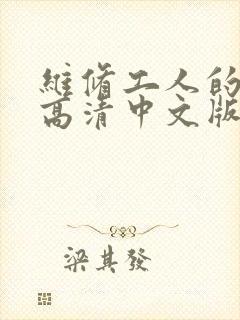 維脩工人的
高清中文版
梁其發